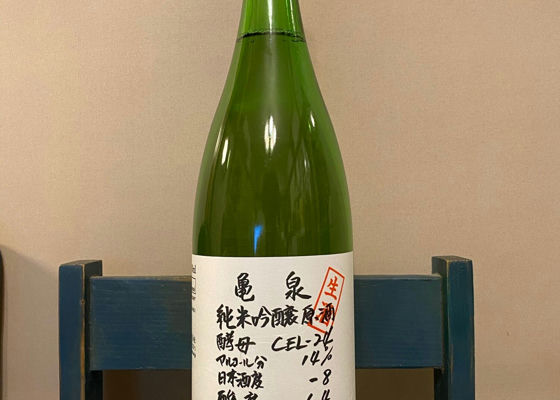 亀泉
生酒
純米吟醸原酒
酵母 CEL-24
アルコール分 14%
日本酒度 -8